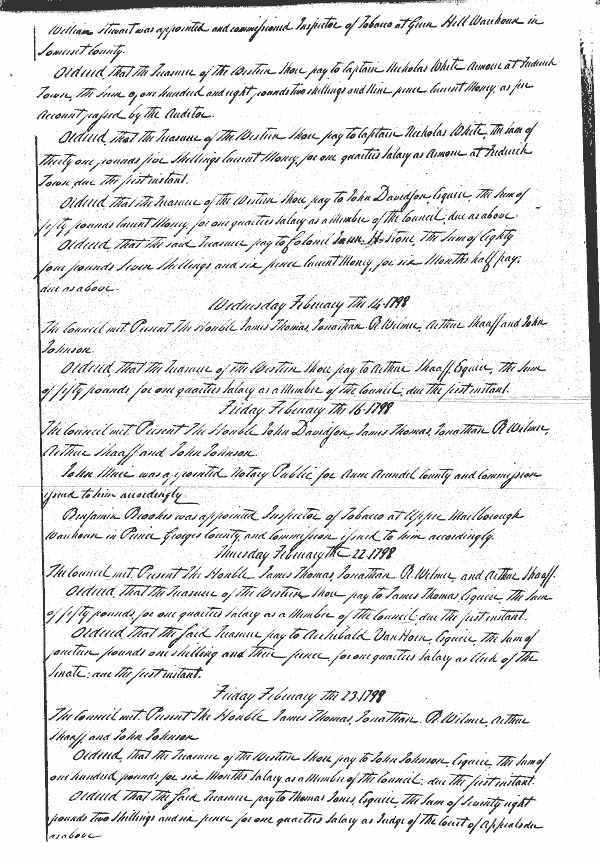 William Stewart was appointed and commissioned Inspector of Tobacco at Green Hill Warehouse in
Somerset County.
Ordered, that the Treasurer of the Western Shore pay to Captain Nicholas White Armourer at Frederick
Town, the sum of one hundred and eight pounds two shillings and Nine pence Current Money, as per
Account passed by the Auditor.
Ordered, that the Treasurer of the Western Shore pay to Captain Nicholas White, the sum of
thirty one pounds five Shillings Current Money, for one quarters Salary as Armourer at Frederick
Town, due the first instant.
Ordered, that the Treasurer of the Western Shore pay to John Davidson, Esquire, the Sum of
fifty pounds Current Money, for one quarters Salary as a Member of the Council, due as above.
Ordered, that the said Treasurer pay to Colonel H. Stone, the Sum of Eighty
four pounds Seven Shillings and six pence Current Money, for six Months half pay,
due as above.
Wednesday February the 14. 1798
The Council met. Present The Honble James Thomas, Jonathan R. Wilmer, Arthur Shaaff and John
Johnson.
Ordered, that the Treasurer of the Western Shore pay to Arthur Shaaff, Esquire, the Sum
of fifty pounds, for one quarters Salary as a Member of the Council, due the first instant.
Friday February the 16. 1798
The Council met. Present The Honble John Davidson, James Thomas, Jonathan R. Wilmer,
Arthur Shaaff and John Johnson.
John Muir was appointed Notary Public for Anne Arundel County and Commission
issued to him accordingly.
Benjamin Brookes was appointed Inspector of Tobacco at Upper Marlborough
Warehouse in Prince Georges County, and Commission issued to him accordingly.
Thursday February the 22. 1798
The Council met. Present The Honble James Thomas, Jonathan R. Wilmer, and Arthur Shaaff.
Ordered, that the Treasurer of the Western Shore pay to James Thomas, Esquire, the Sum
of fifty pounds, for one quarters Salary as a Member of the Council, due the first instant.
Ordered, that the said Treasurer pay to Archibald Van Horn, Esquire, the Sum of
fourteen pounds one shilling and three pence, for one quarters Salary as Clerk of the
Senate, due the first instant.
Friday February the 23. 1798
The Council met. Present The Honble James Thomas, Jonathan R. Wilmer, Arthur
Shaaff, and John Johnson
Ordered, that the Treasurer of the Western Shore pay to John Johnson, Esquire, the Sum of
one hundred pounds, for six Months Salary as a Member of the Council, due the first instant.
Ordered that the said Treasurer pay to Thomas Jones, Esquire, the Sum of Seventy eight
pounds two Shillings and six pence for one quarters Salary as Judge of the Court of Appeals due
as above